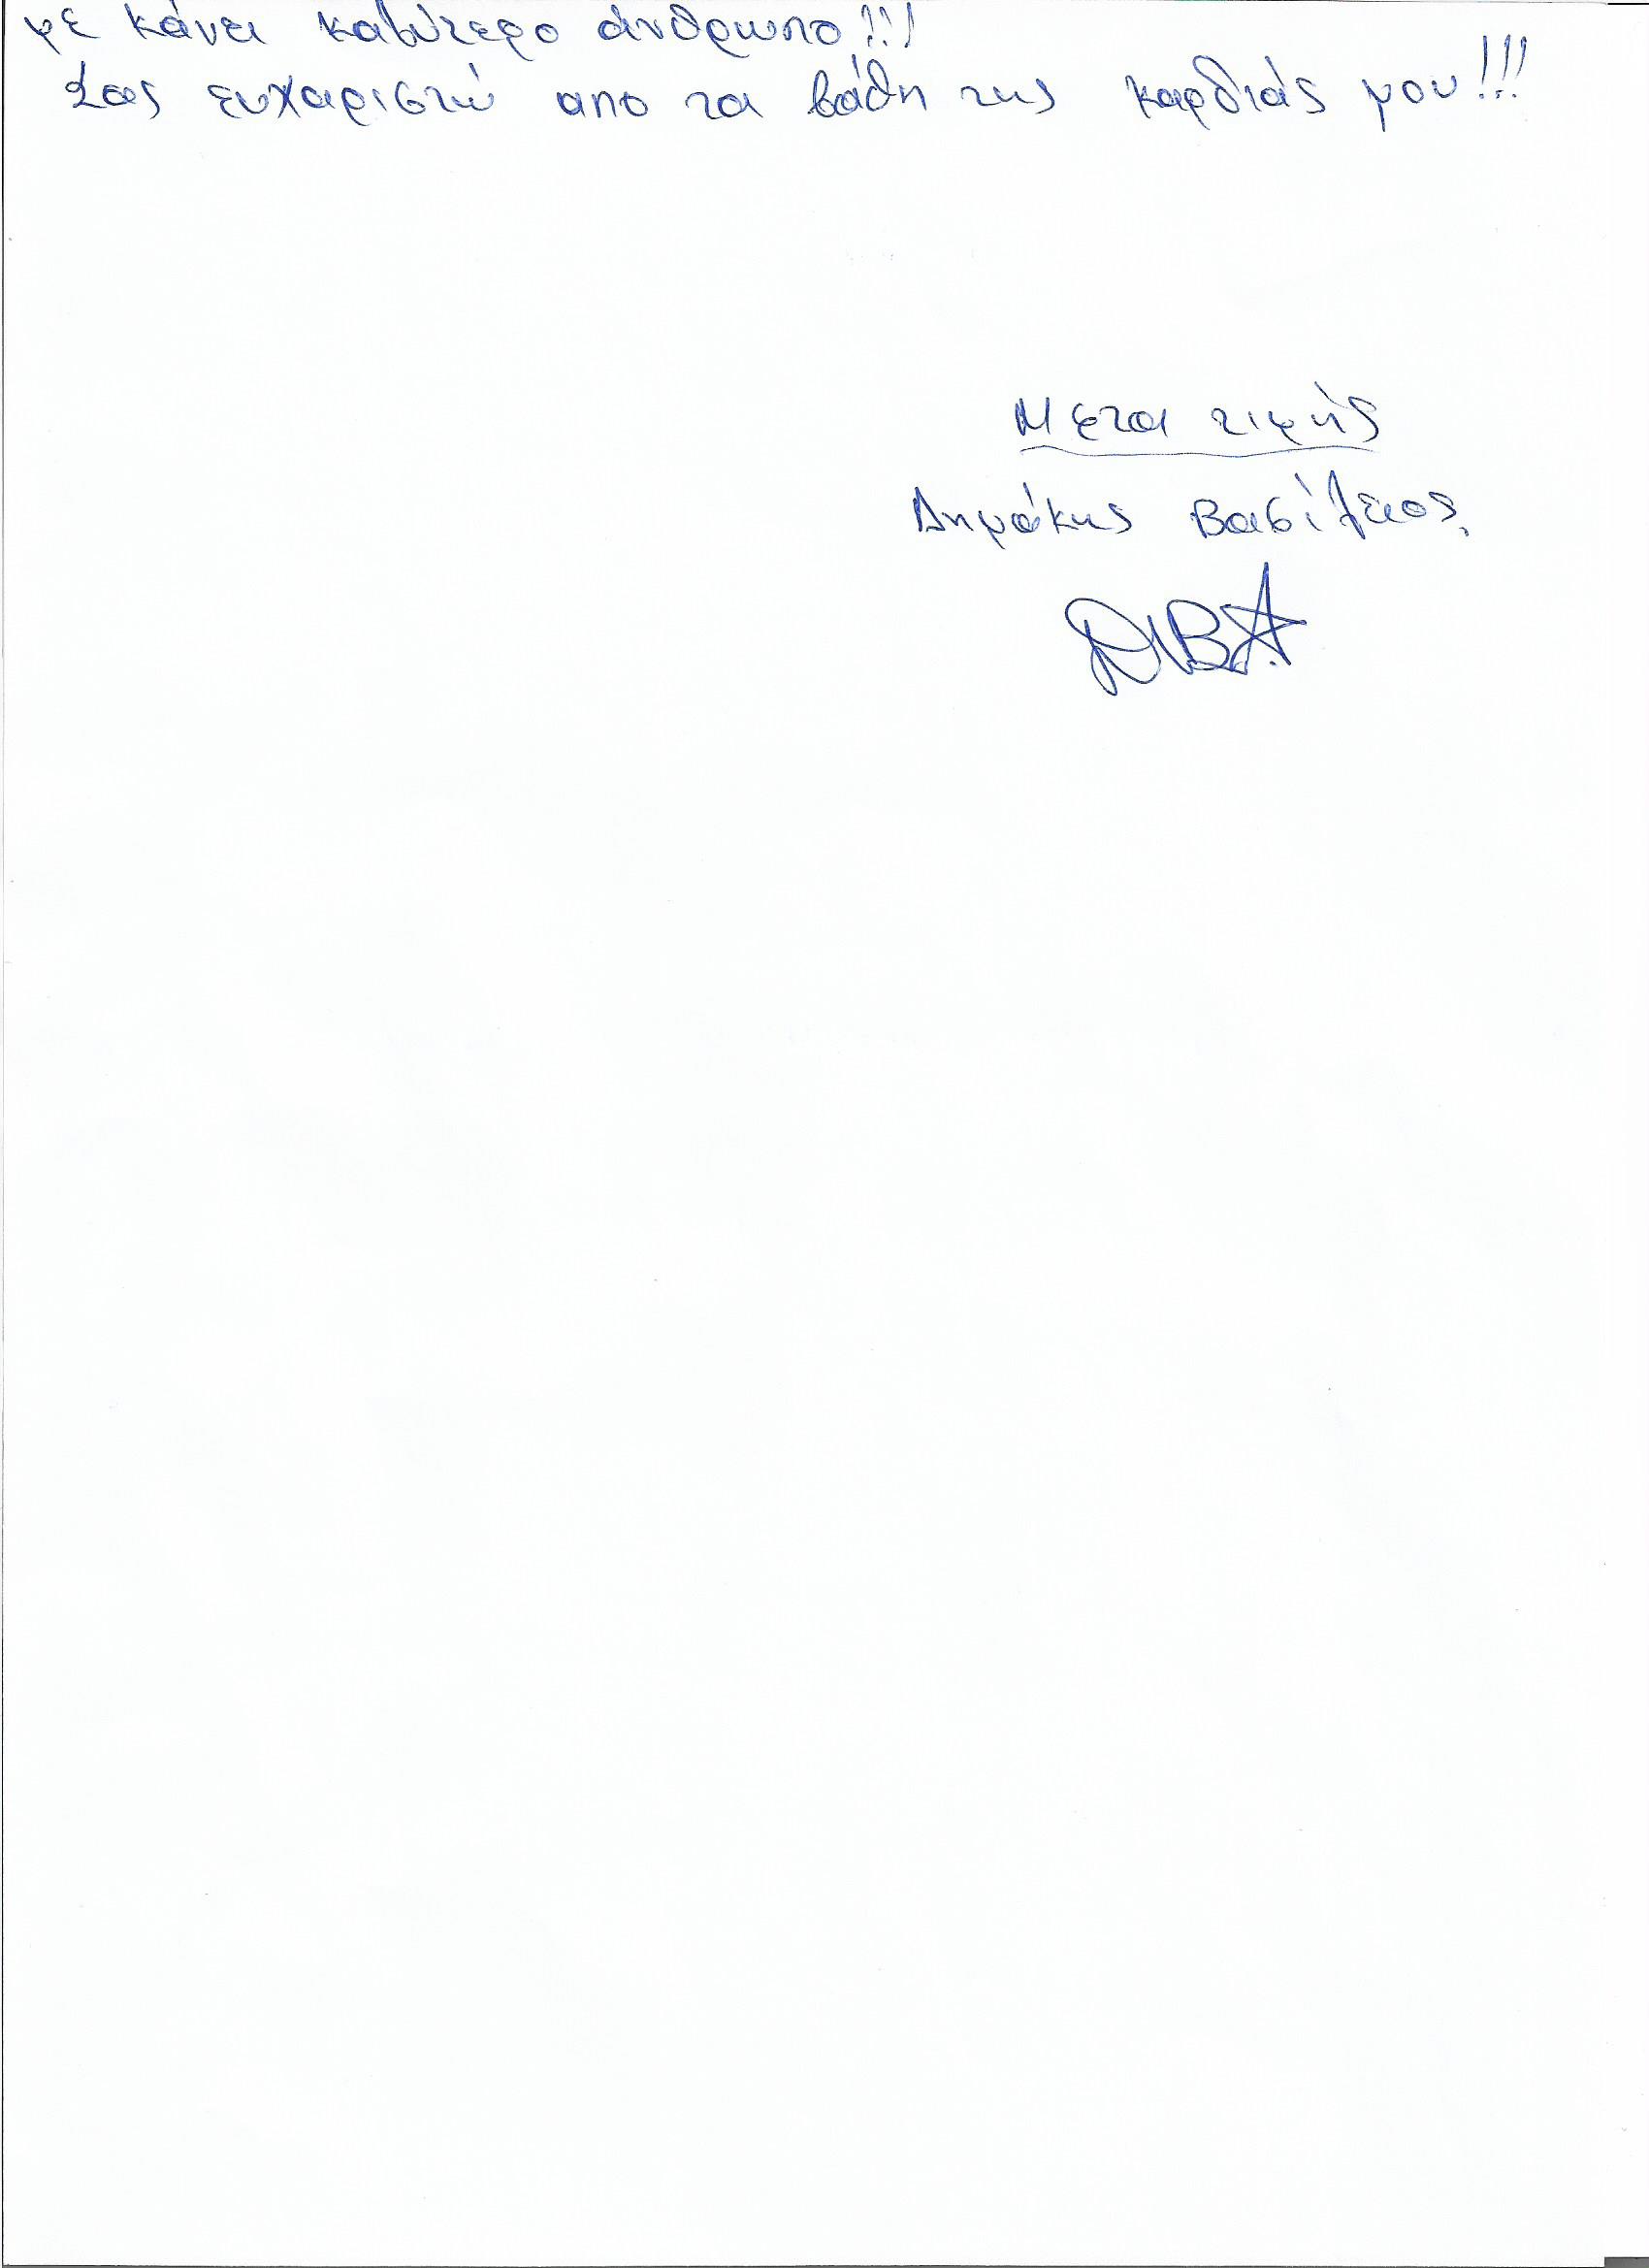 με κάνει καλύτερο άνθρωπο!!!
Σας ευχαριστώ απο τα βάθη της καρδιάς μου!!!
Μετα τιμής
Δημάκης Βασίλειος